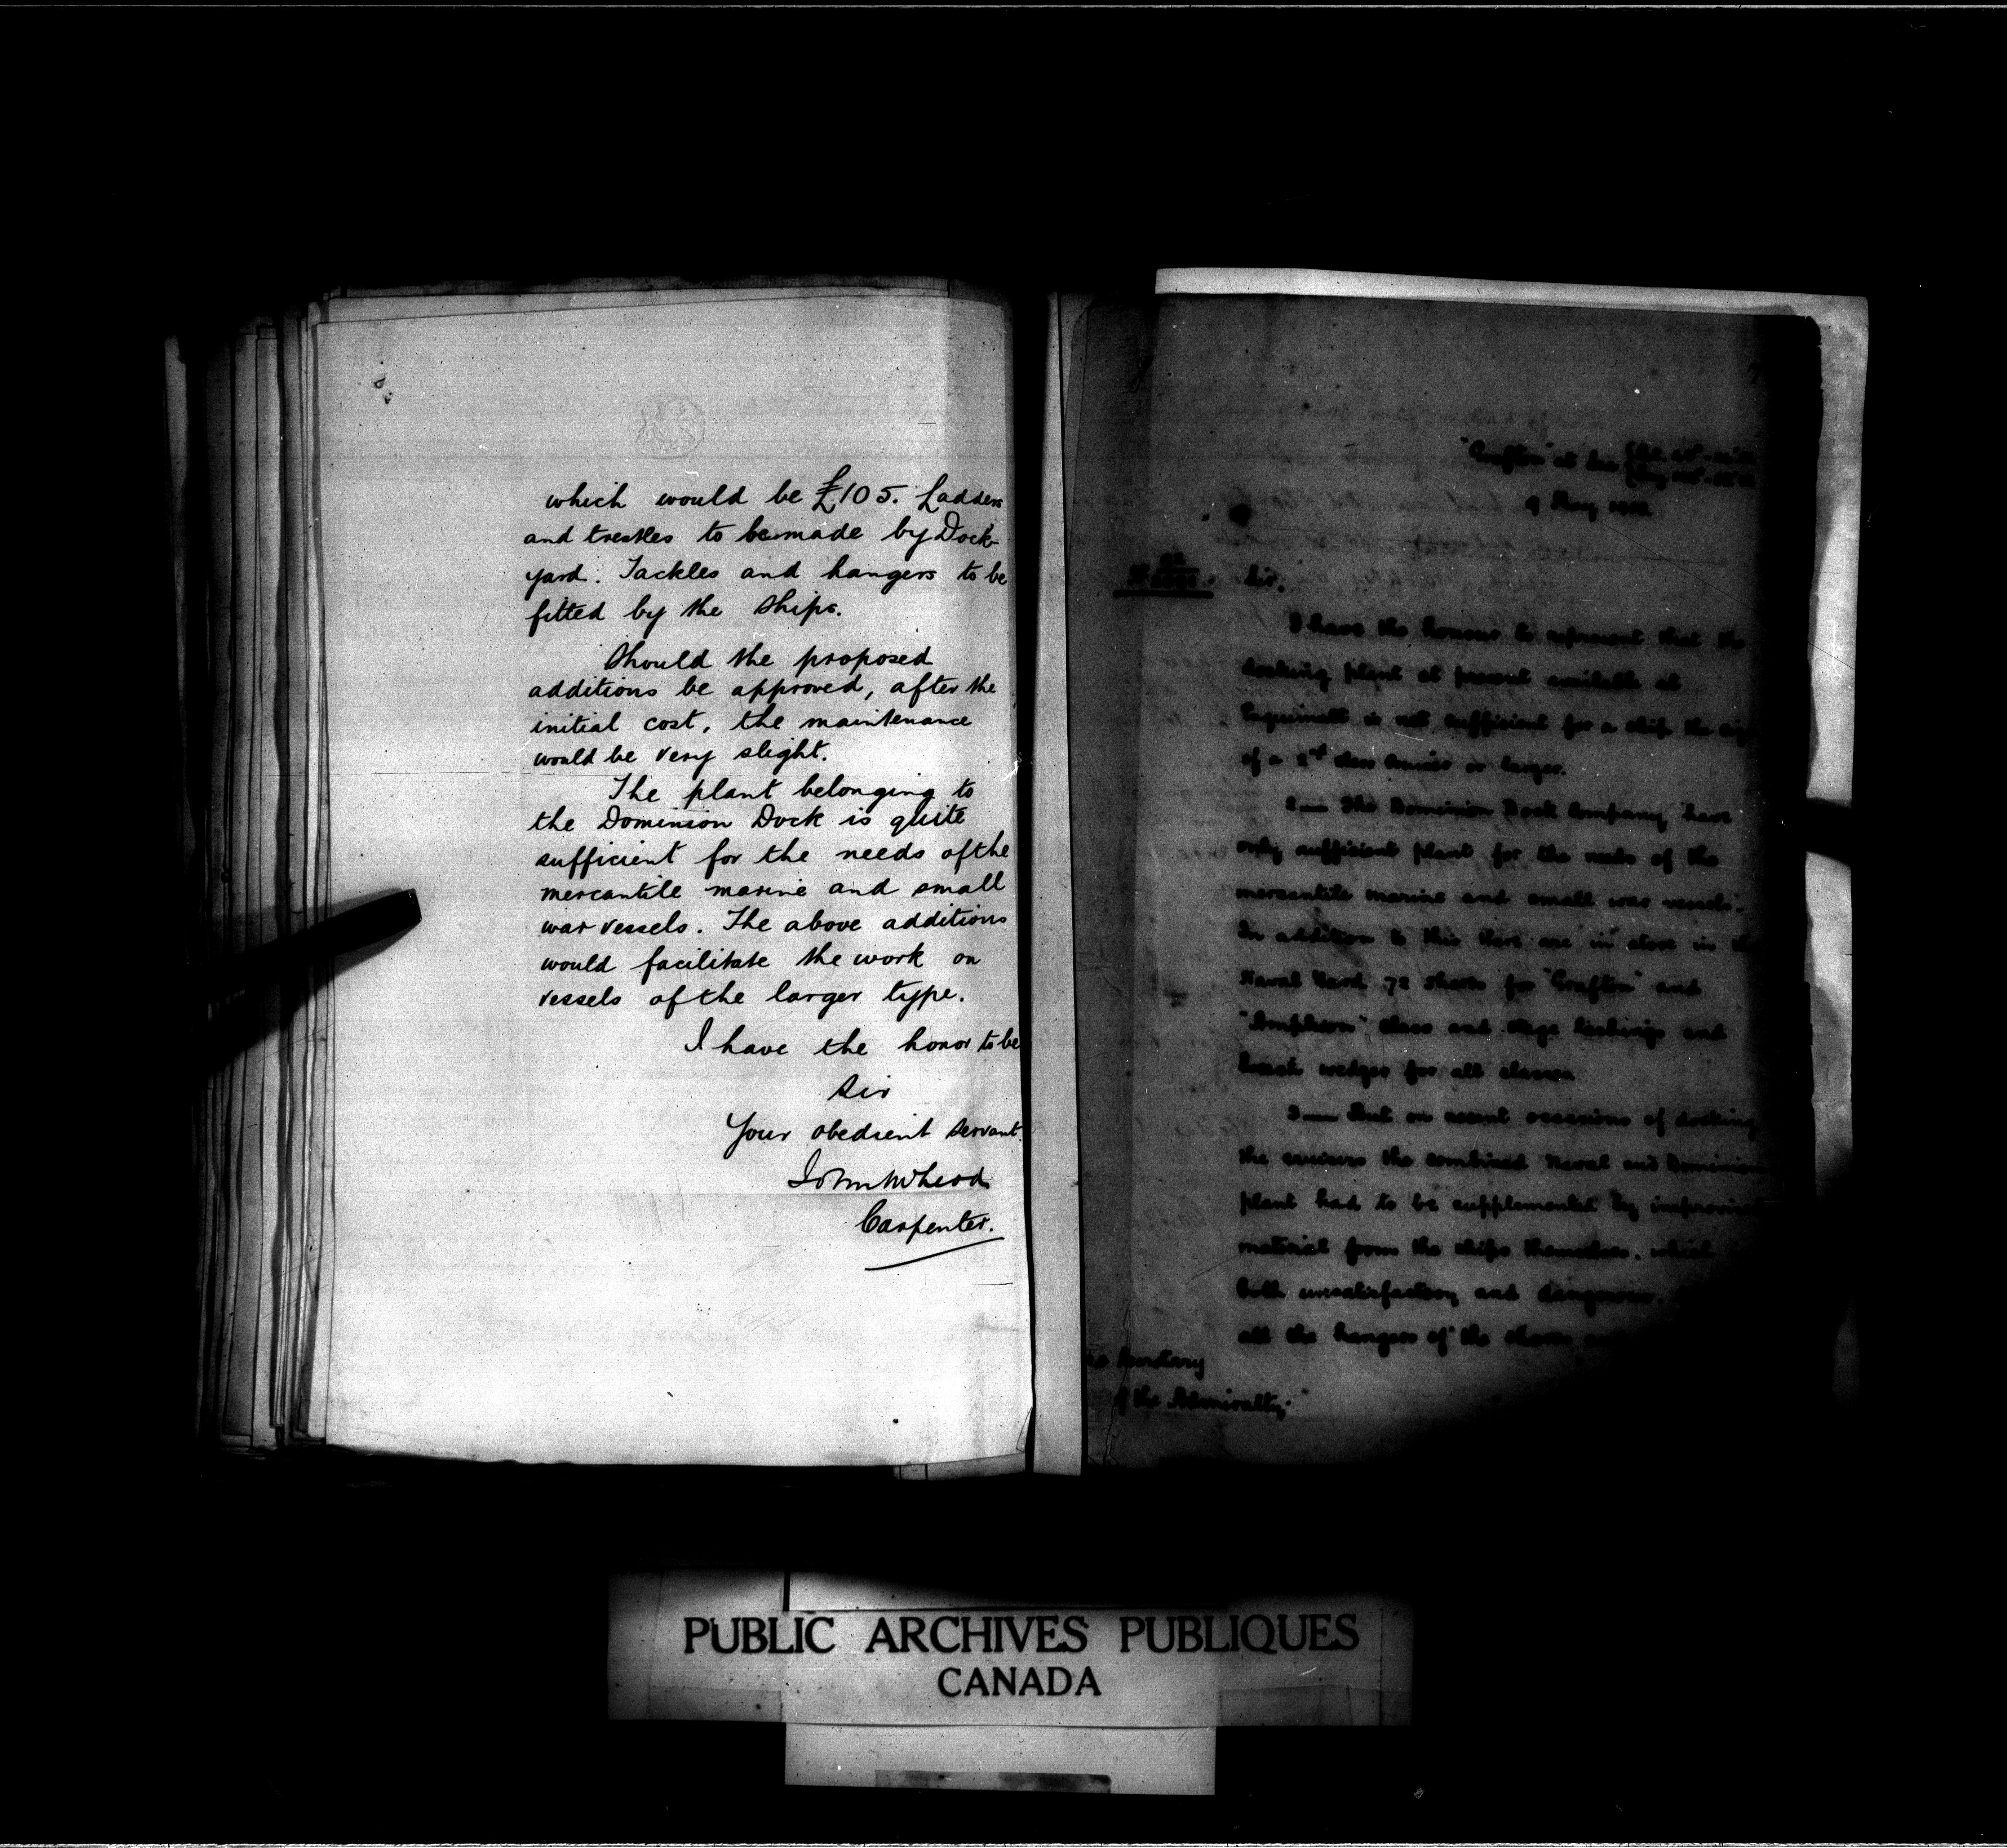 which would be £105. Ladders
and trestles to be made by Dock-
yard. Tackles and hangers to be
fitted by the ships.
Should the proposed
additions be approved, after the
initial cost, the maintenance
would be very slight.
The plant belonging to
the Dominion Dock is quite
sufficient for the needs of the
mercantile marine and small
war vessels. The above additions
would facilitate the work on
vessels of the larger type.
I have the honor to be
Sir
Your obedient servant.
Carpenter.
"Grafton" at sea
9 May
Sir,
I have the honour to represent that the
docking plant at present available at
Esquimalt is not sufficient for a ship the
of a 2nd class cruiser or larger.
2 — The Dominion Dock Company have
only sufficient plant for the needs of the
mercantile marine and small war vessels.
In addition to this there are in store in
Naval Yard 72 shores for "Grafton" and
"Amphion" class and stage lashings and
wedges for all classes
3 — But on recent occasions of docking
the cruisers the combined Naval and Dominion
plant had to be supplemented by
material from the ships themselves, which
both unsatisfactory and dangerous.
all the hangers of the shores
Secretary
of the Admiralty.
PUBLIC ARCHIVES PUBLIQUES
CANADA